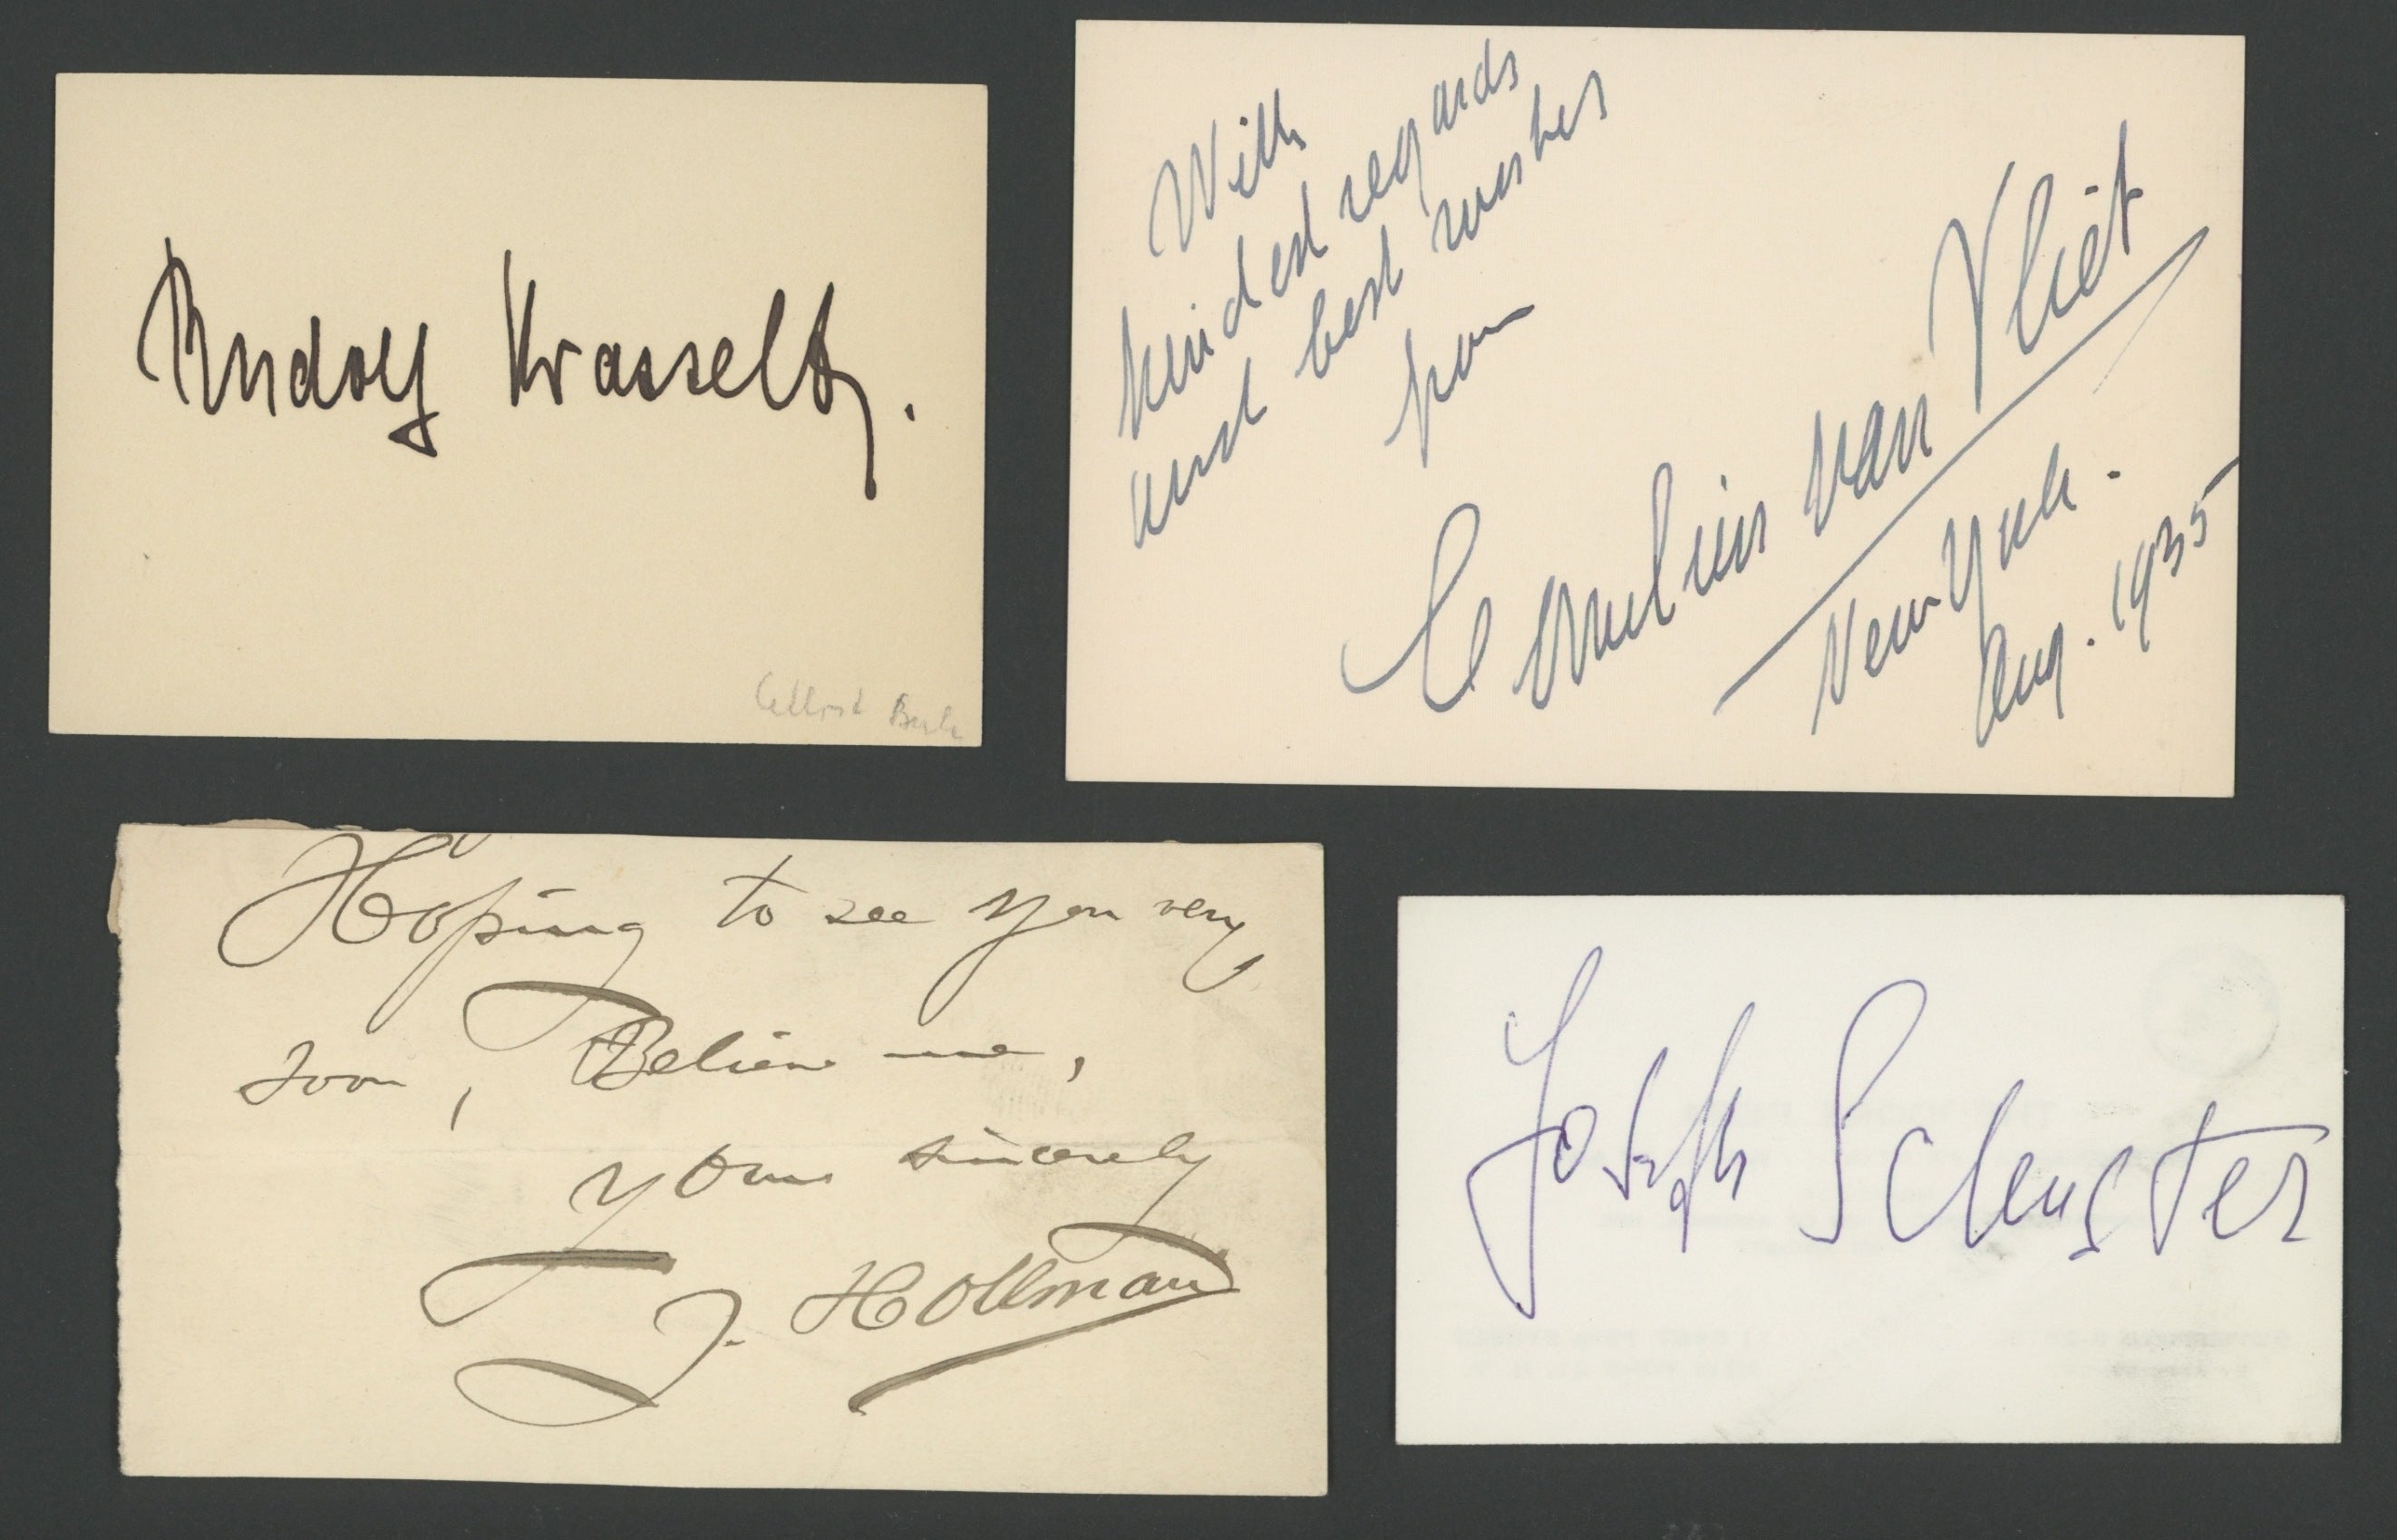 Rudolf Krasselt.
Cellist Berlin
With
kindest regards
and best wishes
from
Cornelius van Vliet
New York.
Aug. 1935
Hoping to see you very
soon, Believe me,
yours sincerely
J. Hollman
Joseph Schuster